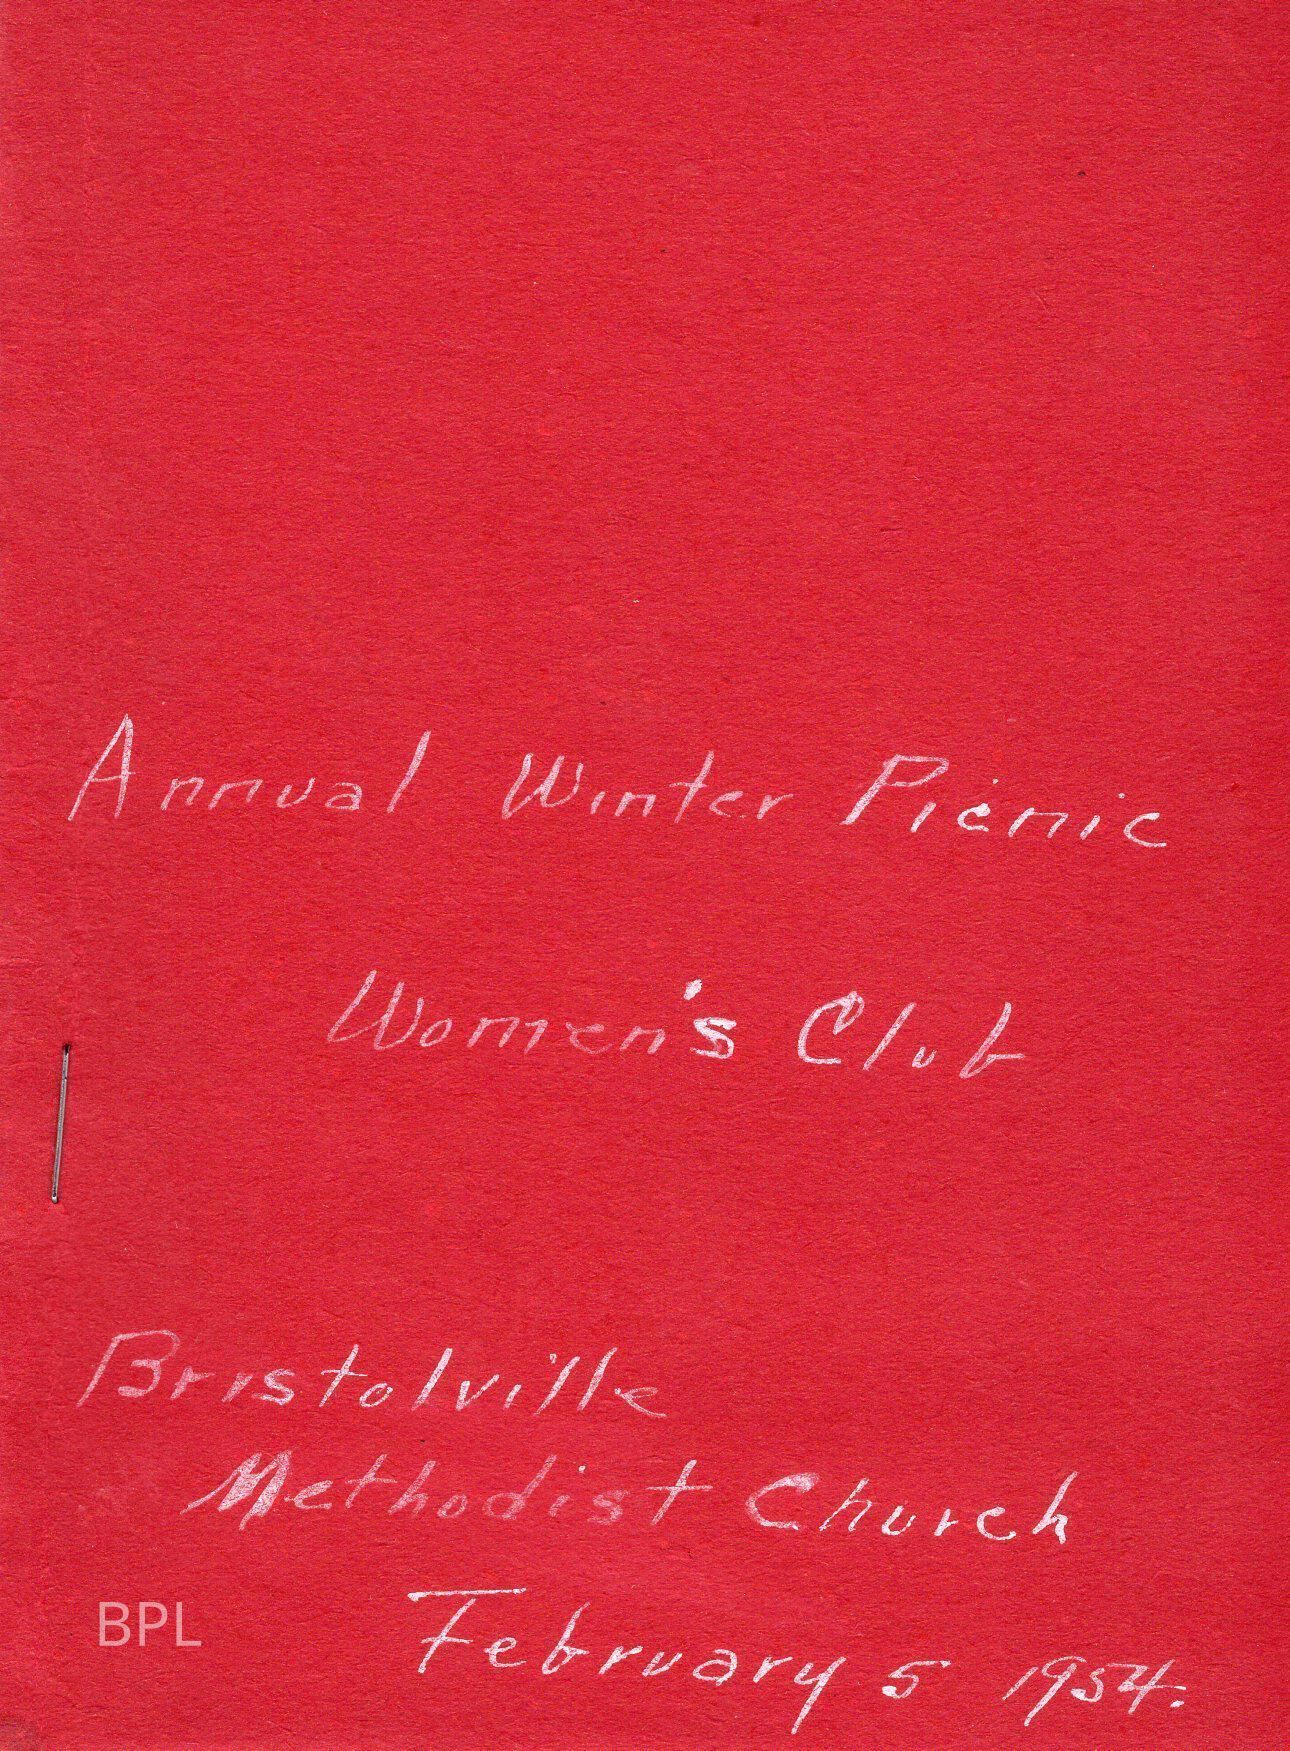 Annual Winter Picnic
Women's Club
Bristolville
Methodist Church
February 5 1954.
BPL